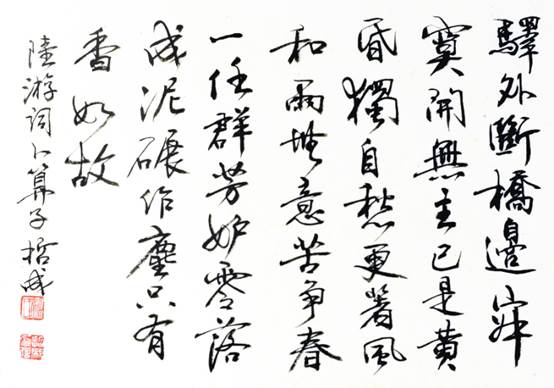 驛外斷橋邊寂
寞開無主已是黃
昏獨自愁更著風
和雨無意苦争春
一任群芳妒零落
成泥碾作塵只有
香如故
陸游詞卜算子